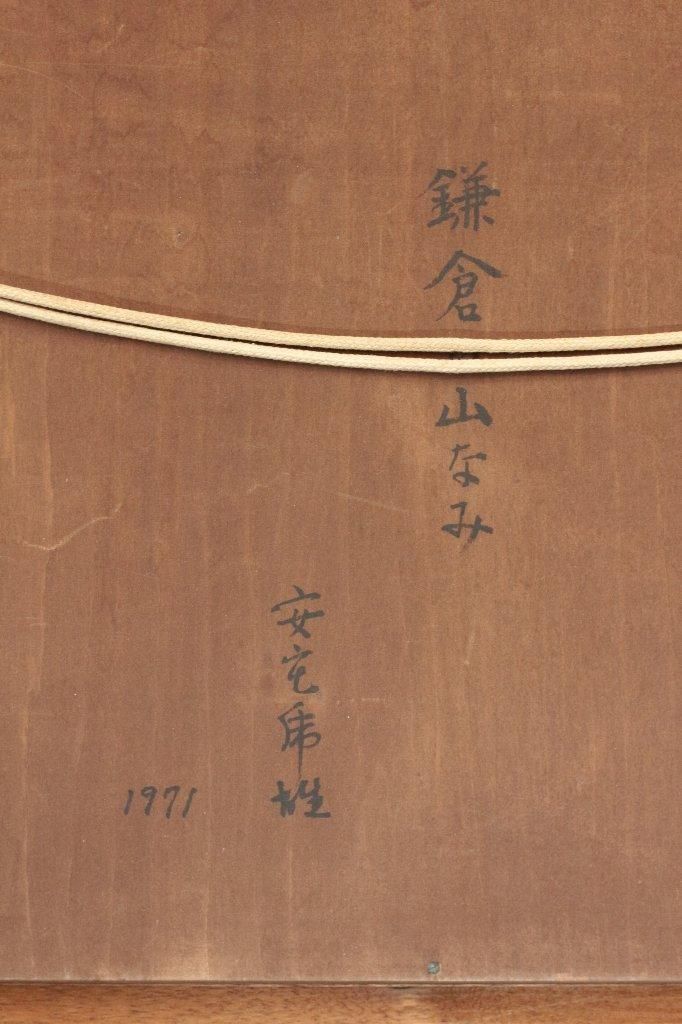 鎌倉山なみ
安宅乕雄
1971